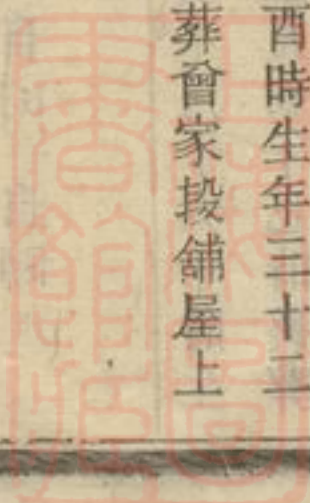 酉時生年三十二
葬曾家段舖屋上